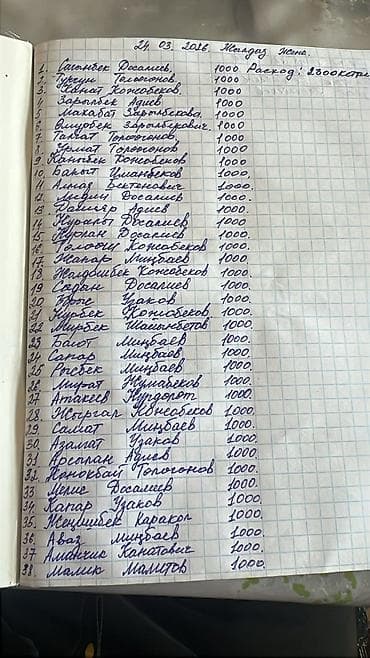 24.03.2026. Жылдыз Жене.
1. Сагынбек Досалиев, 1000 Расход: 2300
2. Тургун Тологонов. 1000
3. Канат Кожобеков. 1000
4. Зарылбек Адиев 1000
5. Махабат Зарылбекова. 1000
6. Омурбек Зарылбекович. 1000
7. Талгат Тологонов. 1000
8. Эрмат Тологонов 1000
9. Каныбек Кожобеков 1000
10. Бакыт Иманбеков, 1000.
11. Алмаз Бектенович 1000.
12. Досалиев 1000.
13. Данияр Адиев 1000.
14. Нуралы Досалиев 1000.
15. Нурлан Досалиев 1000.
16. Кожобеков 1000.
17. Жапар Миңбаев 1000.
18. Жалдошбек Кожобеков 1000.
19. Садан Досалиев 1000.
20. Узаков 1000.
21. Нурбек Кожобеков. 1000.
22. Мирбек Шашынбетов 1000.
23. Баат Миңбаев 1000.
24. Сапар Миңбаев 1000.
25. Рысбек Миңбаев 1000.
26. Мират Жумабеков 1000.
27. Атакеев 1000.
28. Жыргал Кожобеков 1000.
29. Самат Миңбаев 1000.
30. Азамат Узаков 1000.
31. Арсылан Адиев 1000.
32. Конокбай Тологонов 1000.
33. Досалиев 1000.
34. Капар Узаков 1000.
35. Жеңишбек Каракол 1000.
36. Аваз Миңбаев 1000.
37. Аманчик Канатович 1000.
38. Малик Малитов 1000.